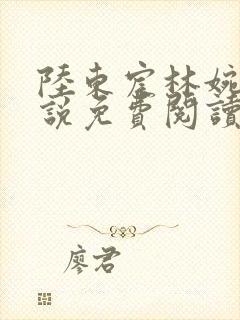 陸東宦林婉
說免費閱讀
廖君